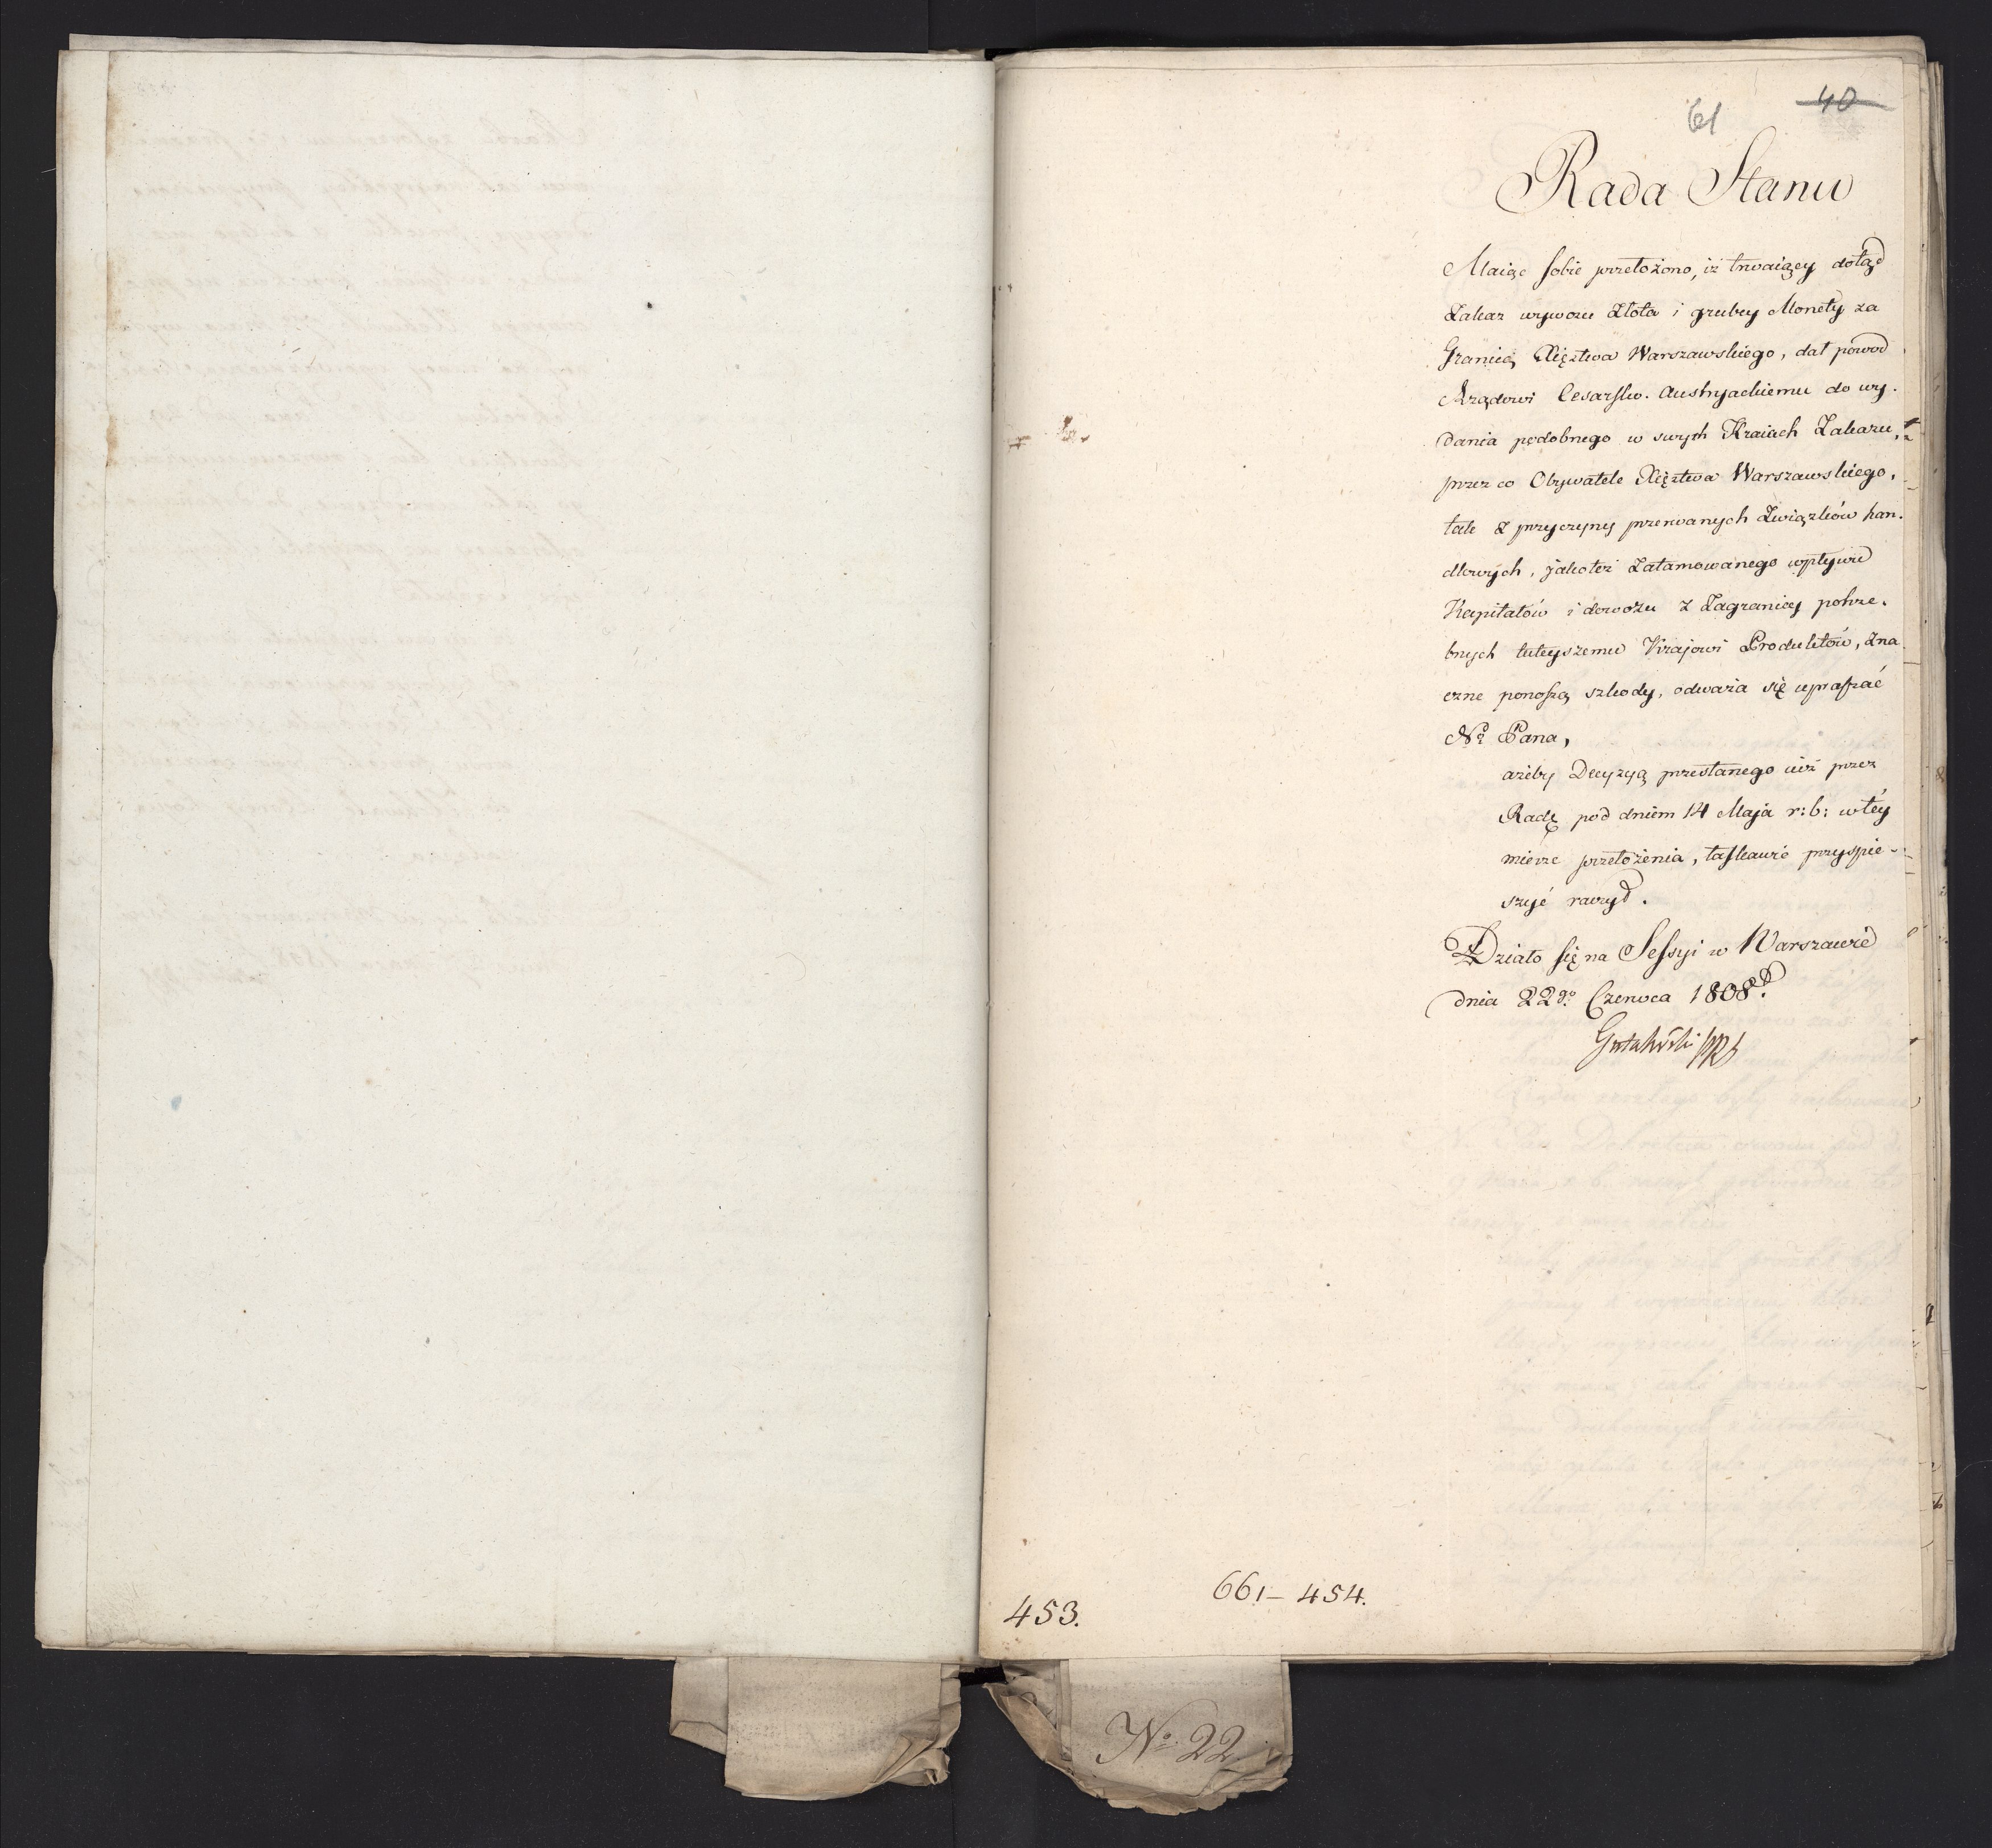 61 40
Rada Stanu
Maiąc sobie przełożono, iż trwaiący dotąd
Zakaz wywozu Złota i grubey Monety za
Granicę Xięztwa Warszawskiego, dał powod
Rządowi Cesarsko. Austryackiemu do wy.
dania podobnego w swych Kraiach Zakazu,
przez co Obywatele Xięztwa Warszawskiego,
tak z przyczyny przerwanych Związków han.
dlowych, jakoteż zatamowanego wpływu
Kapitałów i dowozu z Zagranicy potrze.
bnych tuteyszemu Krajowi Produktów, zna
czne ponoszą szkody, odważa się upraszać
No Pana,
ażeby Decyzyą przesłanego iuż przez
Radę pod dniem 14 Maja r: b: w tey
mierze przełożenia, łaskawie przyspie-
szyć raczył.
Działo się na Sessyi w Warszawie
dnia 22go. Czerwca 1808.
Gutakowski
661 – 454.
453.
No. 22